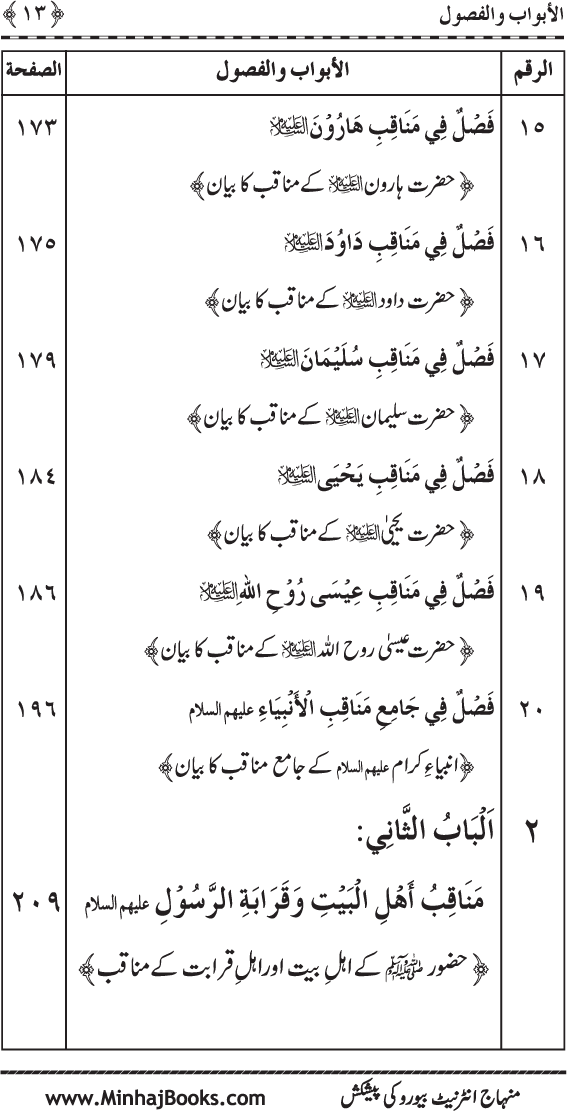 الأبواب والفصول ﴿١٣﴾
الرقم الأبواب والفصول الصفحة
١٥ فَصْلٌ فِي مَنَاقِبِ هَارُوْنَ عليه السلام ١٧٣
﴿حضرت ہارون عليه السلام کے مناقب کا بیان﴾
١٦ فَصْلٌ فِي مَنَاقِبِ دَاوُدَ عليه السلام ١٧٥
﴿حضرت داود عليه السلام کے مناقب کا بیان﴾
١٧ فَصْلٌ فِي مَنَاقِبِ سُلَيْمَانَ عليه السلام ١٧٩
﴿حضرت سلیمان عليه السلام کے مناقب کا بیان﴾
١٨ فَصْلٌ فِي مَنَاقِبِ يَحْيَى عليه السلام ١٨٤
﴿حضرت یحییٰ عليه السلام کے مناقب کا بیان﴾
١٩ فَصْلٌ فِي مَنَاقِبِ عِيْسَى رُوْحِ اللهِ عليه السلام ١٨٦
﴿حضرت عیسیٰ روح اللہ عليه السلام کے مناقب کا بیان﴾
٢٠ فَصْلٌ فِي جَامِعِ مَنَاقِبِ الْأَنْبِيَاءِ عليهم السلام ١٩٦
﴿انبیاءِ کرام عليهم السلام کے جامع مناقب کا بیان﴾
٢ اَلْبَابُ الثَّانِي:
مَنَاقِبُ أَهْلِ الْبَيْتِ وَقَرَابَةِ الرَّسُوْلِ عليهم السلام ٢٠٩
﴿حضور ﷺ کے اہلِ بیت اور اہلِ قرابت کے مناقب﴾
منہاج انٹرنیٹ بیورو کی پیشکش www.MinhajBooks.com